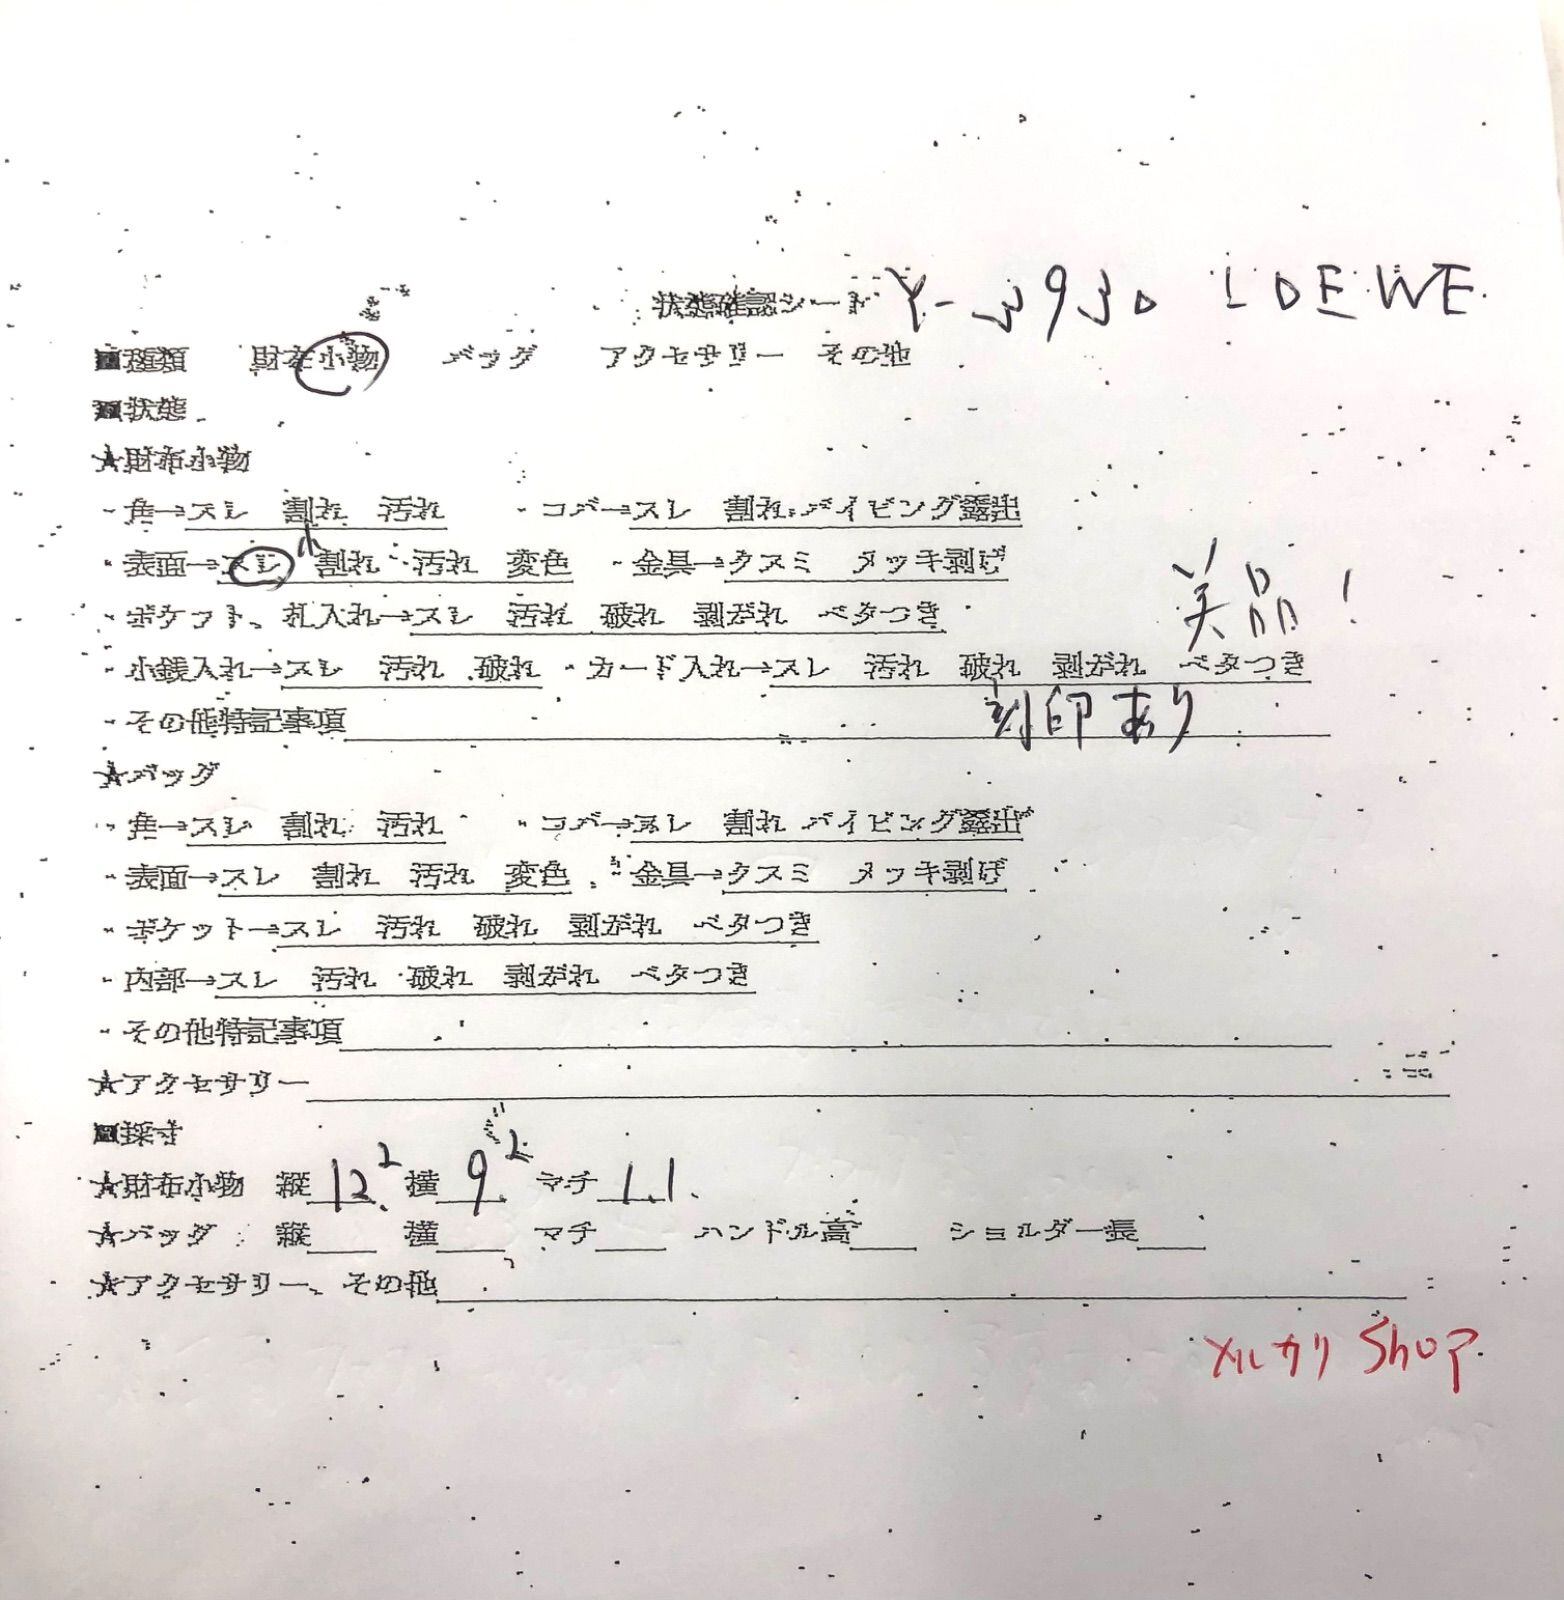 状態確認シート Y-3930 LOEWE
■種類 財布小物 バッグ アクセサリー その他
■状態
★財布小物
・角→スレ 割れ 汚れ ・コバ→スレ 割れ パイピング露出
・表面→スレ 小 割れ 汚れ 変色 ・金具→クスミ メッキ剥げ
美品!
・ポケット、札入れ→スレ 汚れ 破れ 剥がれ ベタつき
・小銭入れ→スレ 汚れ 破れ ・カード入れ→スレ 汚れ 破れ 剥がれ ベタつき
・その他特記事項 刻印あり
★バッグ
・角→スレ 割れ 汚れ ・コバ→スレ 割れ パイピング露出
・表面→スレ 割れ 汚れ 変色 ・金具→クスミ メッキ剥げ
・ポケット→スレ 汚れ 破れ 剥がれ ベタつき
・内部→スレ 汚れ 破れ 剥がれ ベタつき
・その他特記事項
★アクセサリー
■採寸
★財布小物 縦 12.2 横 9.2 マチ 1.1
★バッグ 縦 横 マチ ハンドル高 ショルダー長
★アクセサリー、その他
メルカリ Shop